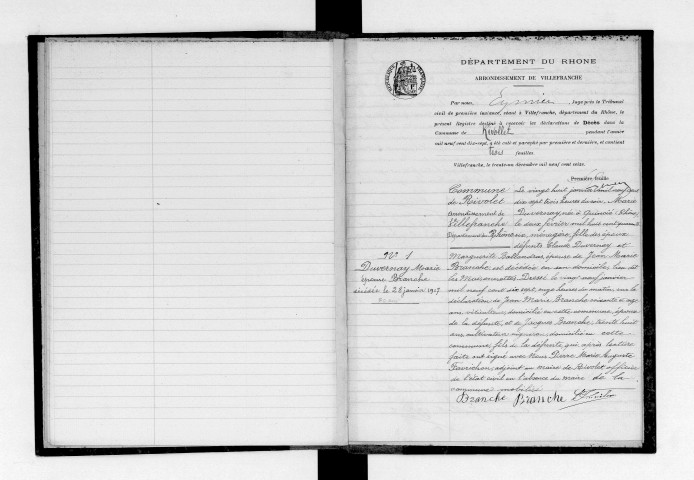 DÉPARTEMENT DU RHONE
ARRONDISSEMENT DE VILLEFRANCHE
Par nous, Juge près le Tribunal
civil de première instance, séant à Villefranche, département du Rhône, le
présent Registre destiné à recevoir les déclarations de Décès dans la
Commune de Rivollet pendant l'année
mil neuf cent dix-sept, a été coté et paraphé par première et dernière, et contient
trois feuilles.
Villefranche, le trente-un décembre mil neuf cent seize.
Première feuille
Commune
de Rivolet
Arrondissement de
Villefranche
Département du Rhône
N° 1
Duvernay Marie
épouse Branche
décédée le 28 janvier 1917
Le vingt huit janvier mil neuf cent
dix sept trois heures du soir, Marie
Duvernay, née à Quincié Rhône,
le deux février mil huit cent
ménagère, fille des époux
défunts Claude Duvernay et
Marguerite épouse de Jean Marie
Branche est décédée en son domicile, lieu dit
les Dressé le vingt neuf janvier
mil neuf cent dix sept, onze heures du matin, sur la
déclaration de Jean Marie Branche soixante
ans viticulteur, domicilié en cette commune, époux
de la défunte, et de Jacques Branche, trente huit
ans cultivateur vigneron, domicilié en cette
commune, fils de la défunte, qui après lecture
faite ont signé avec Nous Pierre Marie Auguste
adjoint au maire de Rivolet officier
de l'état civil en l'absence du maire de la
commune mobilisé
Branche Branche